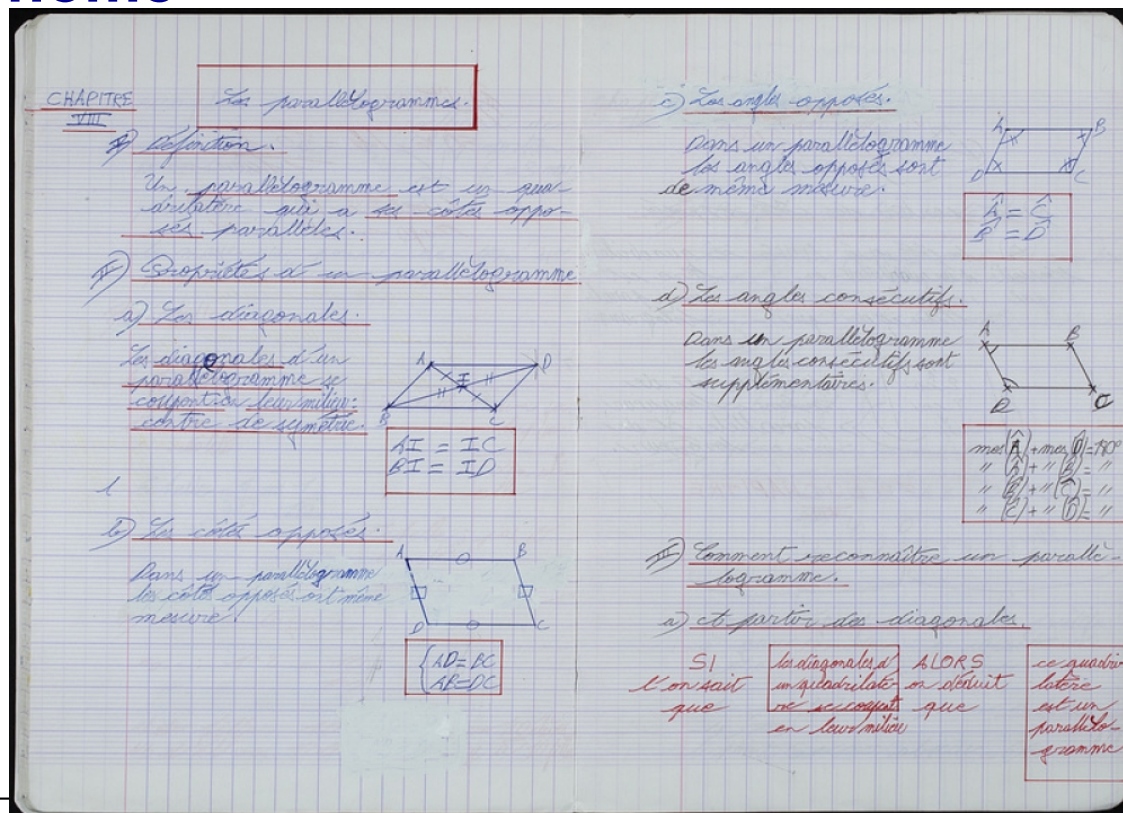 CHAPITRE
VIII
Les parallélogrammes.
I) Définition.
Un parallélogramme est un qua-
drilatère qui a ses côtés oppo-
sés parallèles.
II) Propriétés d'un parallélogramme
a) Les diagonales.
Les diagonales d'un
parallélogramme se
coupent en leur milieu:
centre de symétrie.
A
D
I
B
C
AI = IC
BI = ID
b) Les côtés opposés.
Dans un parallélogramme
les côtés opposés ont même
mesure.
A
B
D
C
AD=BC
AB=DC
c) Les angles opposés.
Dans un parallélogramme
les angles opposés sont
de même mesure.
A
B
D
C
Â = Ĉ
B̂ = D̂
d) Les angles consécutifs.
Dans un parallélogramme
les angles consécutifs sont
supplémentaires.
A
B
D
C
mes(Â)+mes(D̂)=180°
" (Â)+"(B̂)= "
" (B̂)+"(Ĉ)= "
" (Ĉ)+"(D̂)= "
III) Comment reconnaître un parallé-
logramme.
a) A partir des diagonales.
SI
l'on sait
que
les diagonales d'
un quadrilatè
re se coupent
en leur milieu
ALORS
on déduit
que
ce quadri
latère
est un
parallélo-
gramme